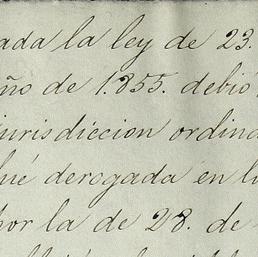 ada la ley de 23.
ño de 1.855. debió
jurisdiccion ordina
ué derogada en l
por la de 28. de